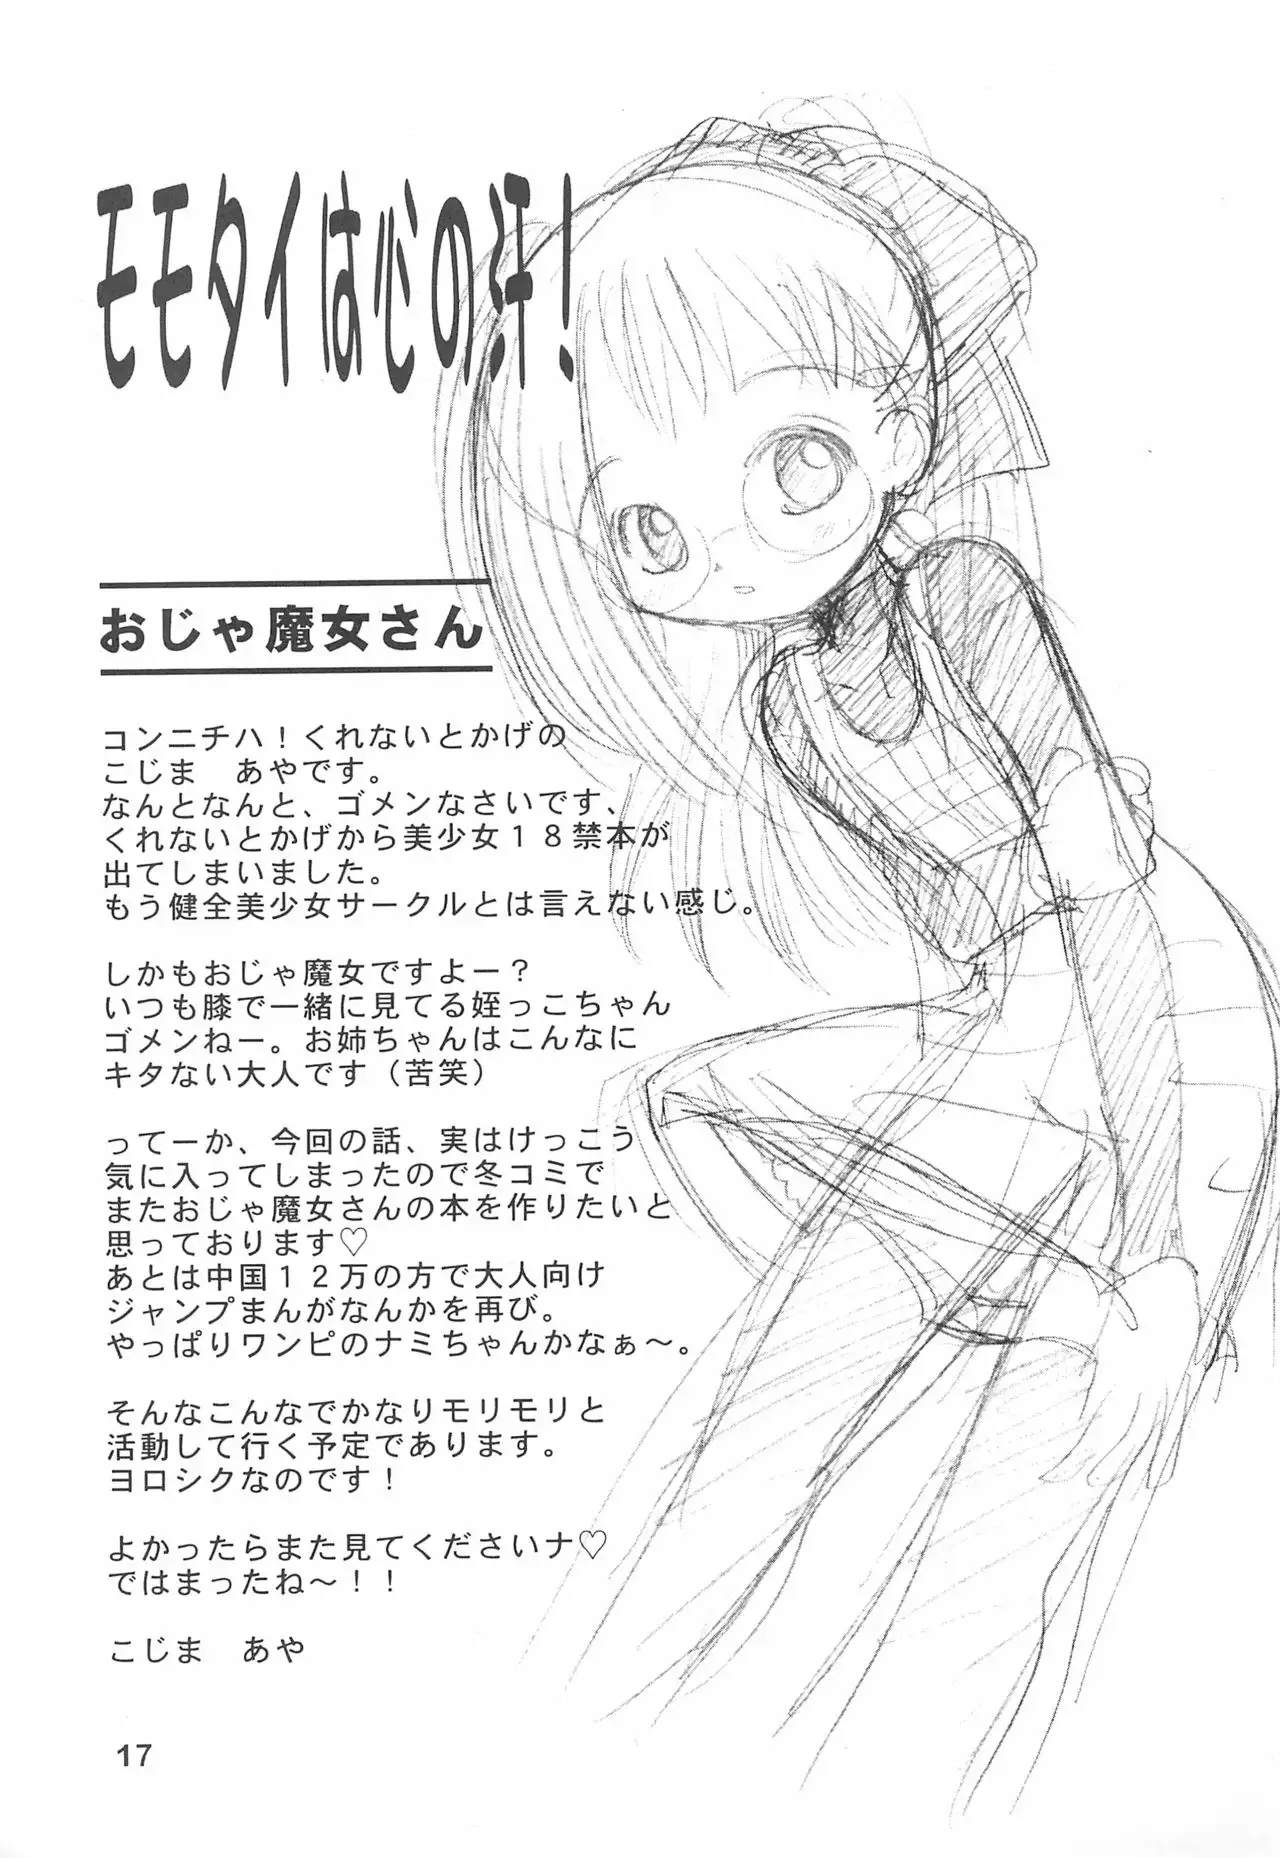 モモタイは心の汗!
おじゃ魔女さん
コンニチハ！くれないとかげの
こじま　あやです。
なんとなんと、ゴメンなさいです、
くれないとかげから美少女１８禁本が
出てしまいました。
もう健全美少女サークルとは言えない感じ。
しかもおじゃ魔女ですよー？
いつも膝で一緒に見てる姪っこちゃん
ゴメンねー。お姉ちゃんはこんなに
キタない大人です（苦笑）
ってーか、今回の話、実はけっこう
気に入ってしまったので冬コミで
またおじゃ魔女さんの本を作りたいと
思っております♡
あとは中国１２万の方で大人向け
ジャンプまんがなんかを再び。
やっぱりワンピのナミちゃんかなぁ～。
そんなこんなでかなりモリモリと
活動して行く予定であります。
ヨロシクなのです！
よかったらまた見てくださいナ♡
ではまったね～！！
こじま　あや
17